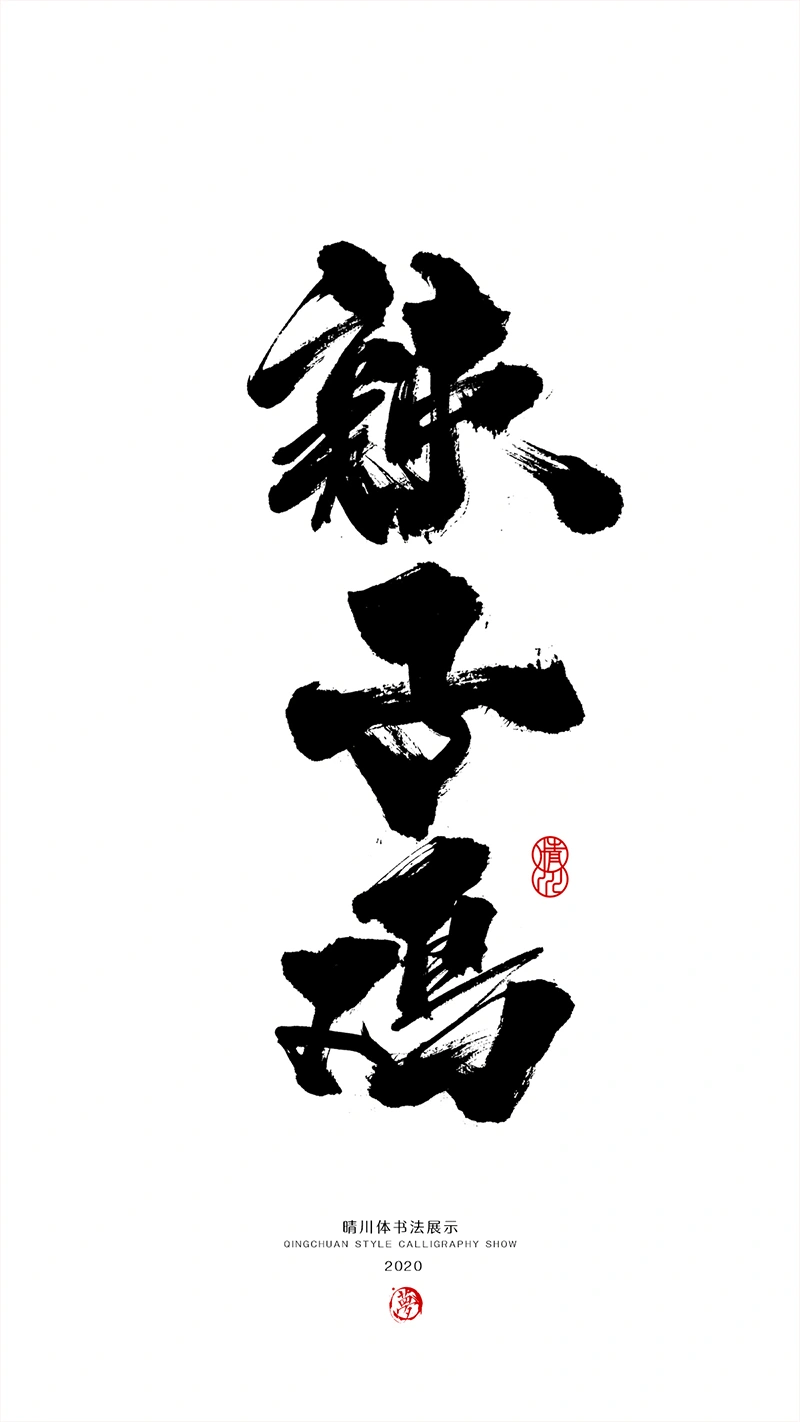 辣
子
鸡
晴川
晴川体书法展示
QINGCHUAN STYLE CALLIGRAPHY SHOW
2020
夢